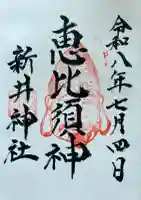 令和八年七月四日
恵比須神
新井神社